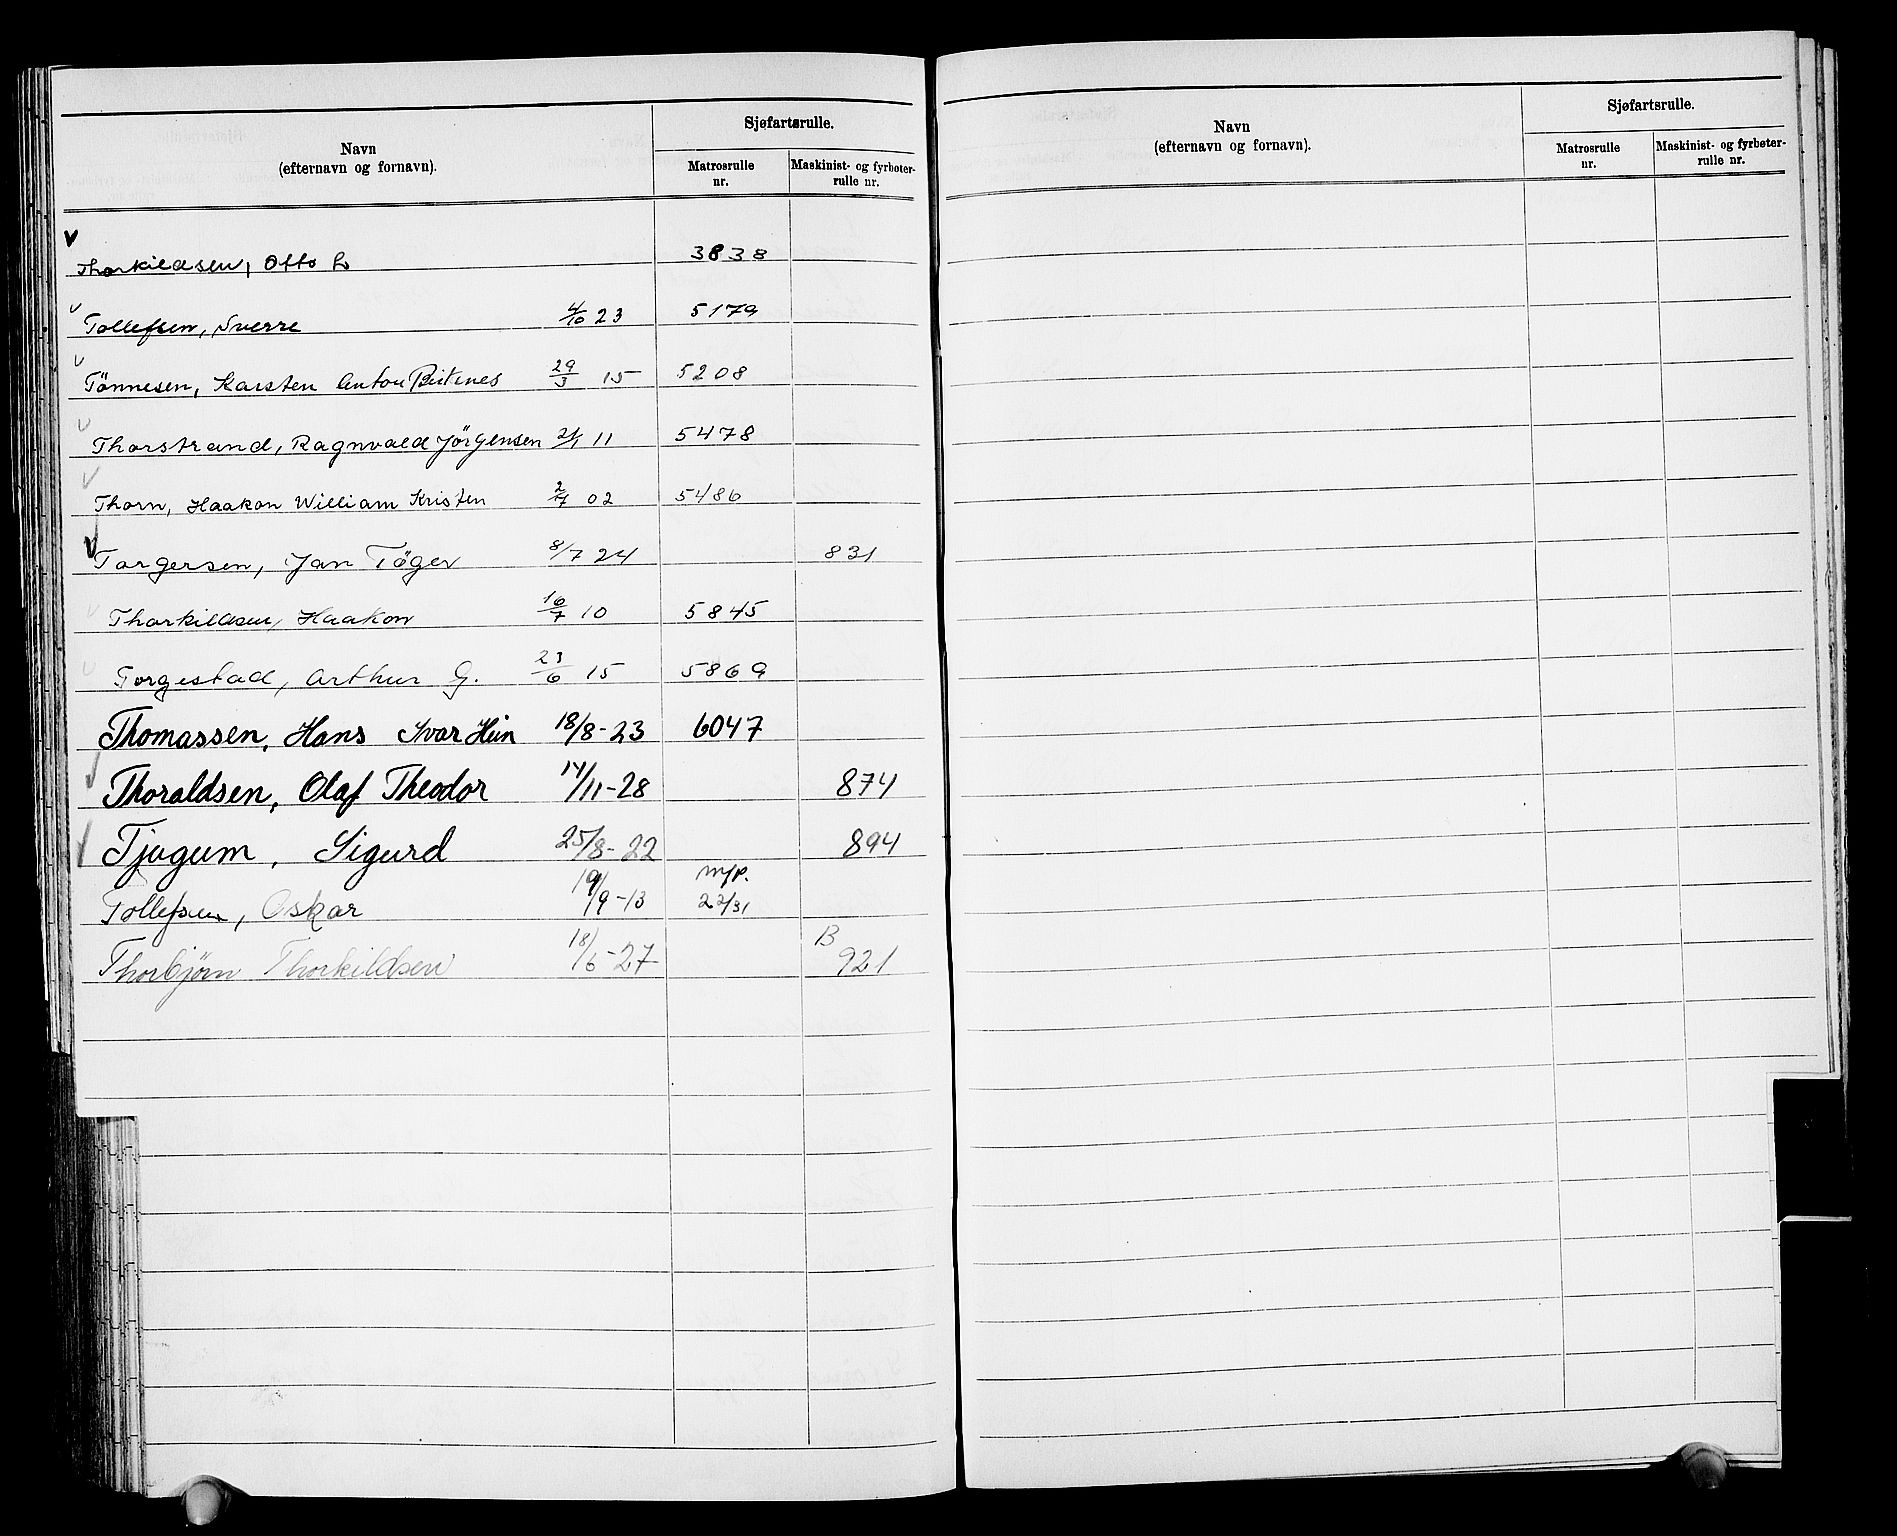 Navn
(efternavn og fornavn).
Sjøfartsrulle.
Matrosrulle
nr.
Maskinist- og fyrbøter-
rulle nr.
Thorkildsen, Otto 3838
Tollefsen, Sverre 4/10 23 5179
Tönnesen, Karsten Anton 29/3 15 5208
Thorstrand, Ragnvald Jörgensen 2/1 11 5478
Thorn, Haakon William Kristen 2/7 02 5486
Torgersen, Jan Töger 8/7 24 831
Thorkildsen, Haakon 16/7 10 5845
Torgestad, Arthur G. 23/6 15 5869
Thomassen, Hans Ivar 18/8-23 6047
Thoraldsen, Olaf Theodor 14/11-28 874
Tjugum, Sigurd 25/8-22 894
Tollefsen, Oskar 19/9-13 m/p. 22/31
Thorbjörn Thorkildsen 18/6-27 B 921
Navn
(efternavn og fornavn).
Sjøfartsrulle.
Matrosrulle
nr.
Maskinist- og fyrbøter-
rulle nr.